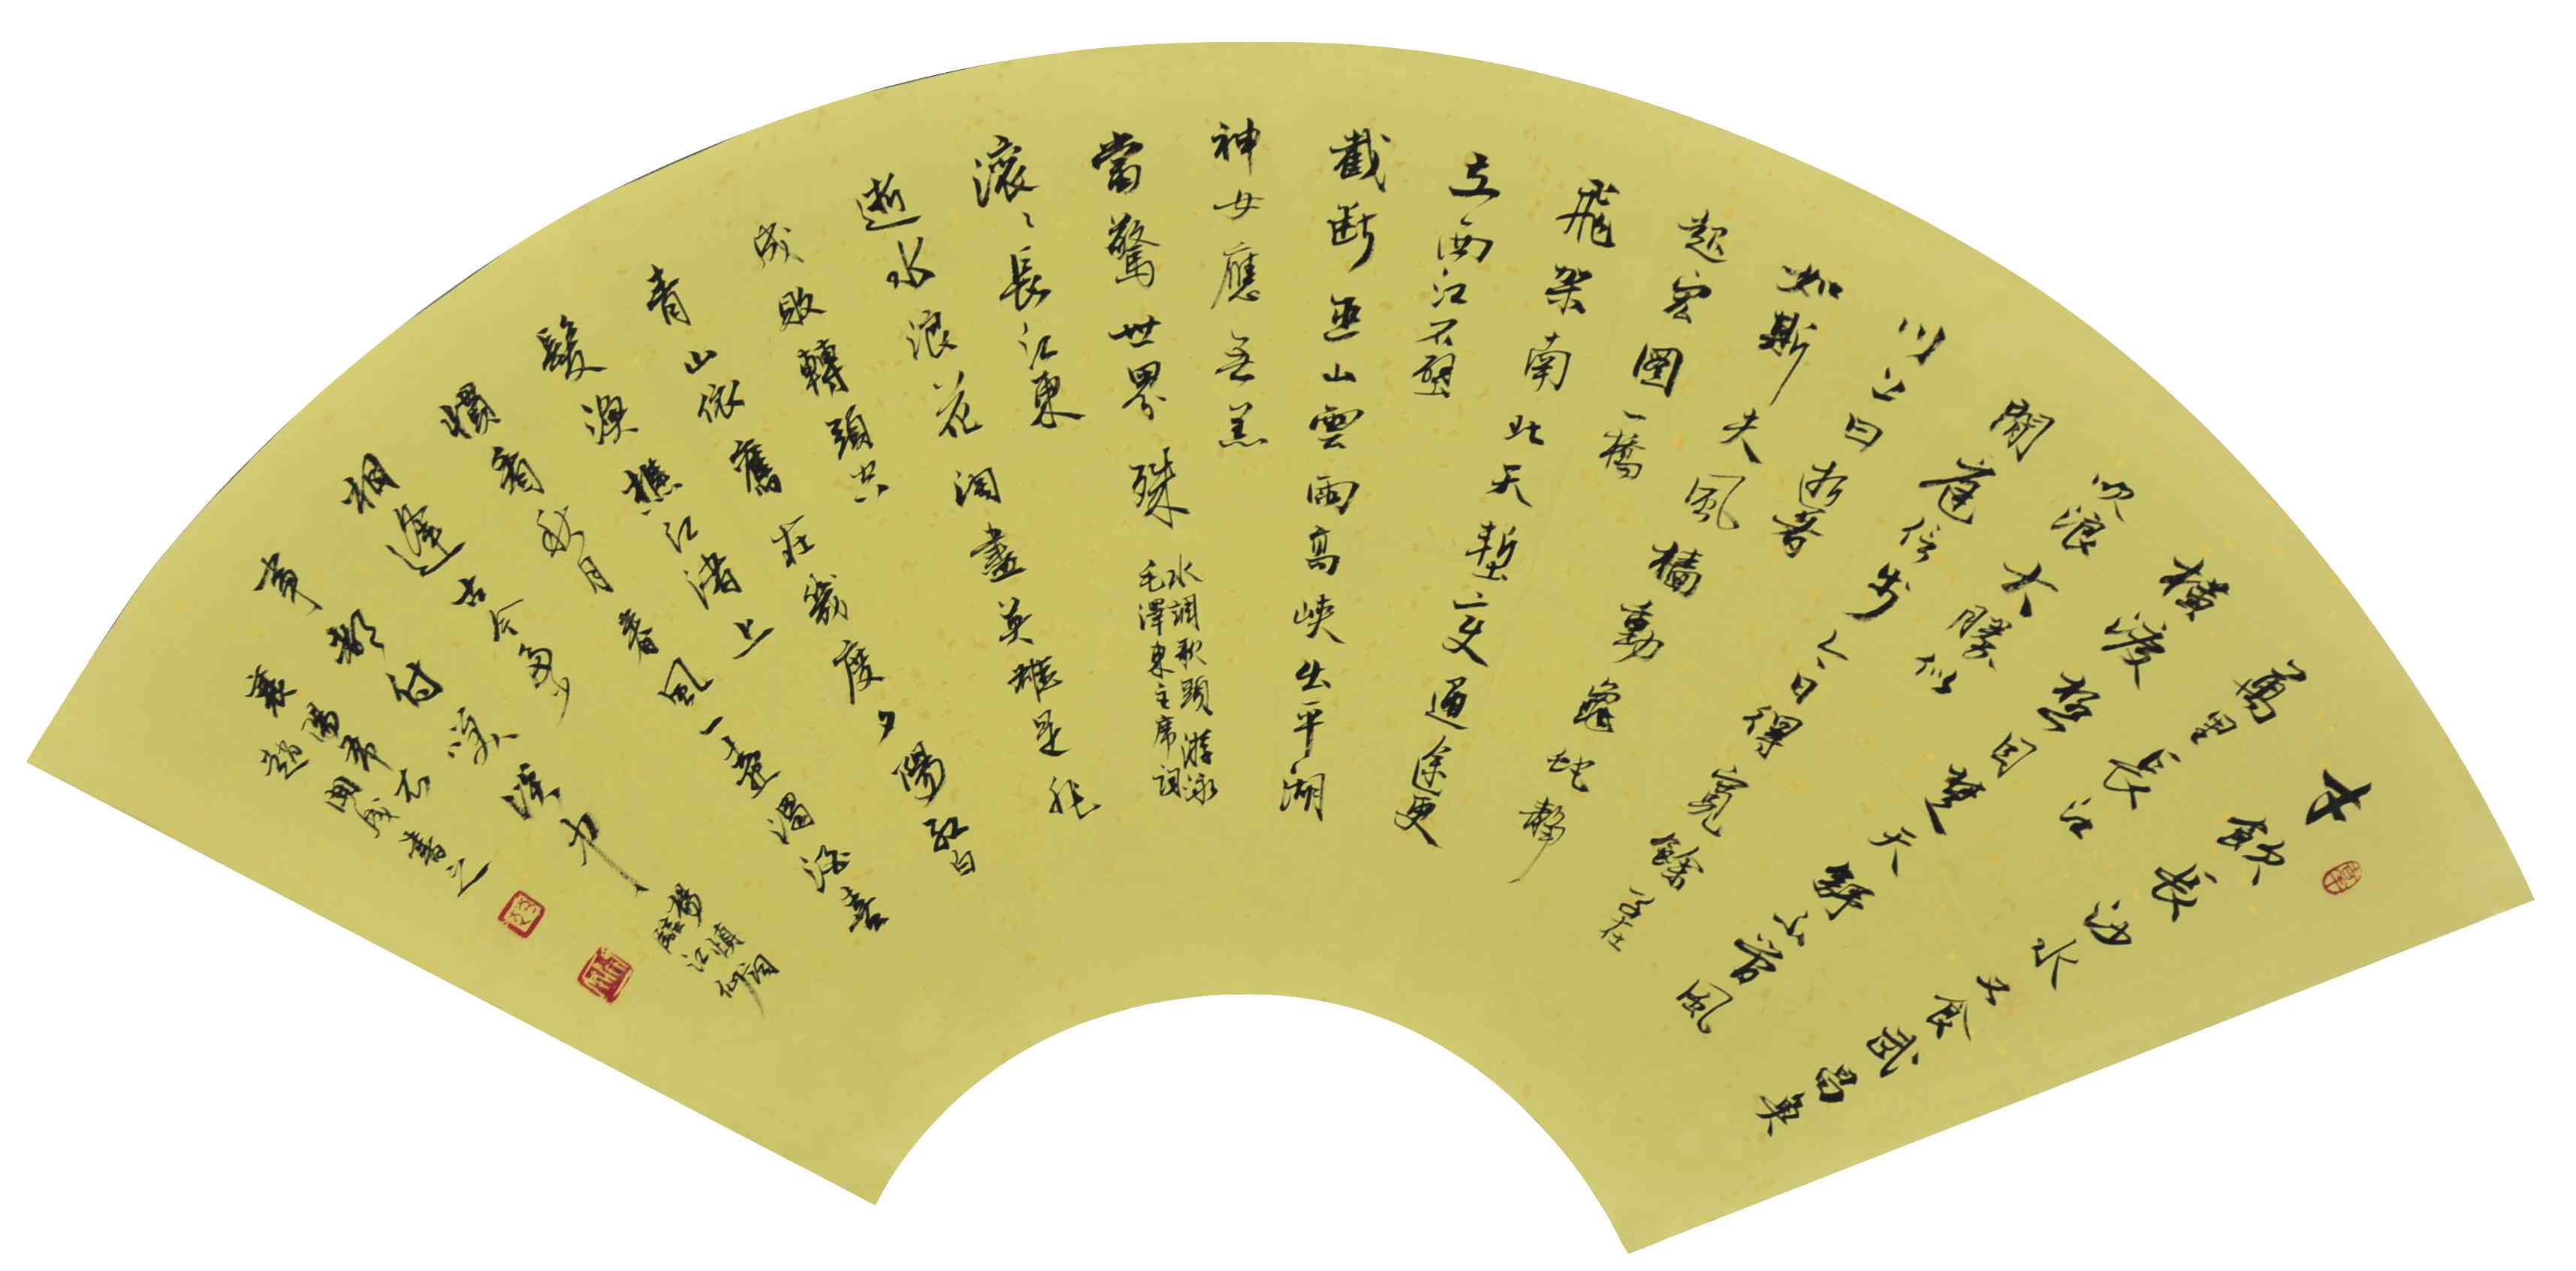 才飲長沙水又食武昌魚
萬里長江
橫渡極目楚天舒不管風
吹浪打勝似
閒庭信步今日得寬餘子在
川上曰逝者
如斯夫風檣動龜蛇靜
起宏圖一橋
飛架南北天塹變通途更
立西江石壁
截斷巫山雲雨高峽出平湖
神女應無恙
當驚世界殊
水調歌頭游泳
毛澤東主席詞
滾〻長江東
逝水浪花淘盡英雄是非
成敗轉頭空
青山依舊在幾度夕陽紅白
髮漁樵江渚上
慣看秋月春風一壺濁酒喜
相逢古今多少
事都付笑談中
楊慎詞
臨江仙
襄陽布衣
趙國成書之